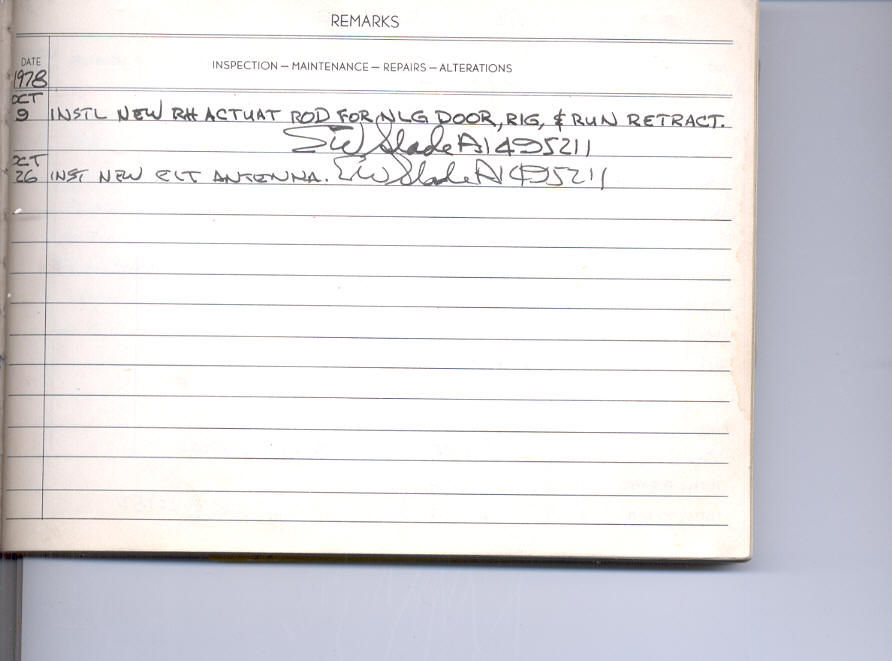 REMARKS
DATE
INSPECTION – MAINTENANCE – REPAIRS – ALTERATIONS
1978
OCT
9 INSTL NEW RH ACTUAT ROD FOR NLG DOOR, RIG, & RUN RETRACT.
Slade A1495211
OCT
26 INST NEW ELT ANTENNA. Slade A1495211